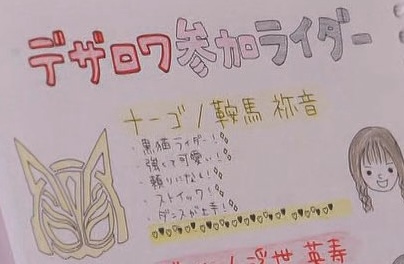 デザロワ参加ライダー
ナーゴ / 鞍馬 祢音
・黒猫ライダー!
・強い!可愛い!
・頼りになる!
・ストイック!
・ダンスが上手!
浮世 英寿